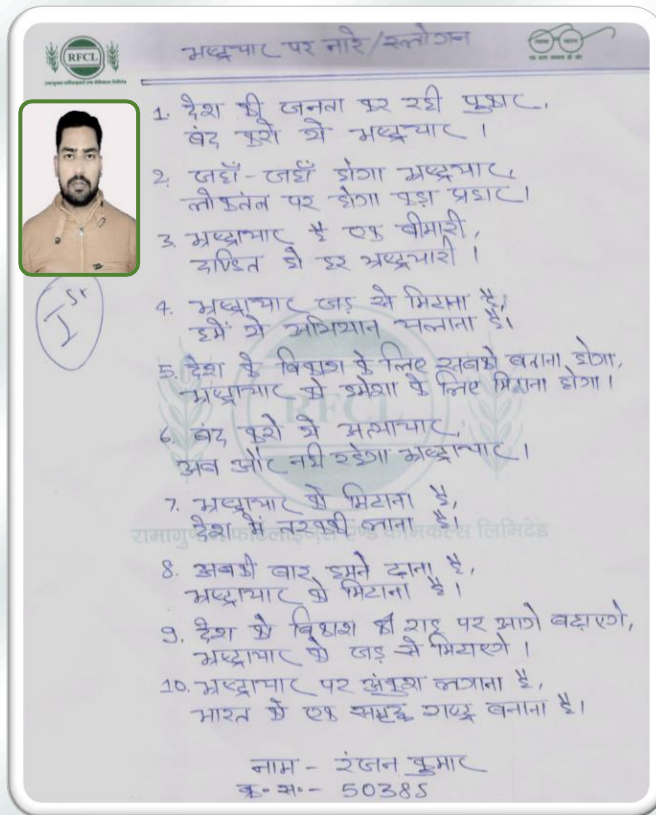 RFCL
भ्रष्टाचार पर नारे/स्लोगन
1. देश की जनता कर रही पुकार,
बंद करो ये भ्रष्टाचार ।
2. जहाँ-जहाँ होगा भ्रष्टाचार,
लोकतंत्र पर होगा कड़ा प्रहार।
3. भ्रष्टाचार है एक बीमारी,
दण्डित हो हर भ्रष्टचारी ।
Ist
4. भ्रष्टाचार जड़ से मिटाना है,
हमें ये अभियान चलाना है।
5. देश के विकाश के लिए सबको बताना होगा,
भ्रष्टाचार को हमेशा के लिए मिटाना होगा।
6. बंद करो ये अत्याचार,
अब और नही रहेगा भ्रष्ट्राचार।
7. भ्रष्ट्राचार को मिटाना है,
देश में तरक्की लाना है।
8. अबकी बार हमने ठाना है,
भ्रष्ट्राचार को मिटाना है।
9. देश को विकाश की राह पर आगे बढ़ाएगे,
भ्रष्ट्राचार को जड़ से मिटाएगे ।
10. भ्रष्ट्राचार पर अंकुश लगाना है,
भारत को एक समृद्ध राष्ट्र बनाना है।
नाम - रंजन कुमार
क्र॰ स॰ - 50385